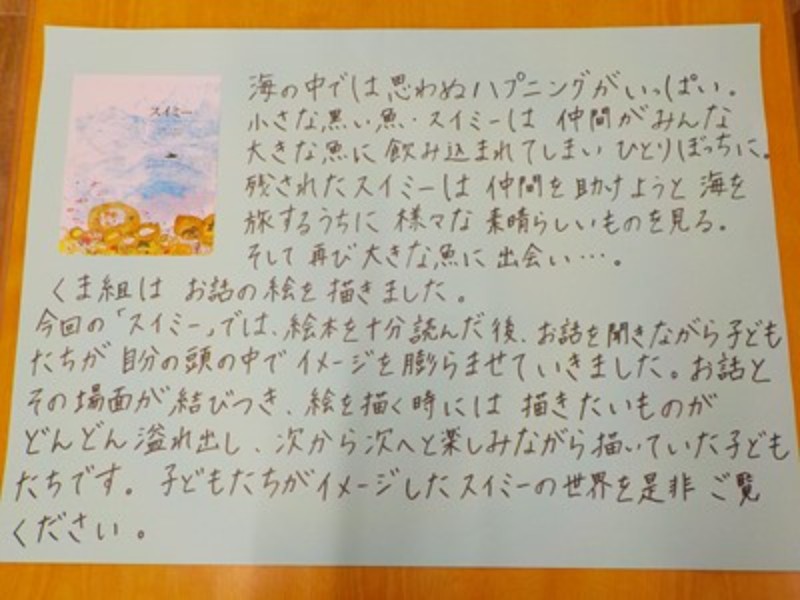 スイミー
海の中では思わぬハプニングがいっぱい。
小さな黒い魚・スイミーは 仲間がみんな
大きな魚に 飲み込まれてしまい ひとりぼっちに。
残されたスイミーは 仲間を助けようと 海を
旅するうちに 様々な 素晴らしいものを見る。
そして 再び 大きな魚に 出会い…。
くま組は お話の絵を 描きました。
今回の「スイミー」では、絵本を十分読んだ後、お話を聞きながら子ども
たちが 自分の頭の中で イメージを膨らませていきました。お話と
その場面が 結びつき、絵を描く時には 描きたいものが
どんどん 溢れ出し、次から次へと楽しみながら描いていた子ども
たちです。子どもたちがイメージしたスイミーの世界を是非 ご覧
ください。